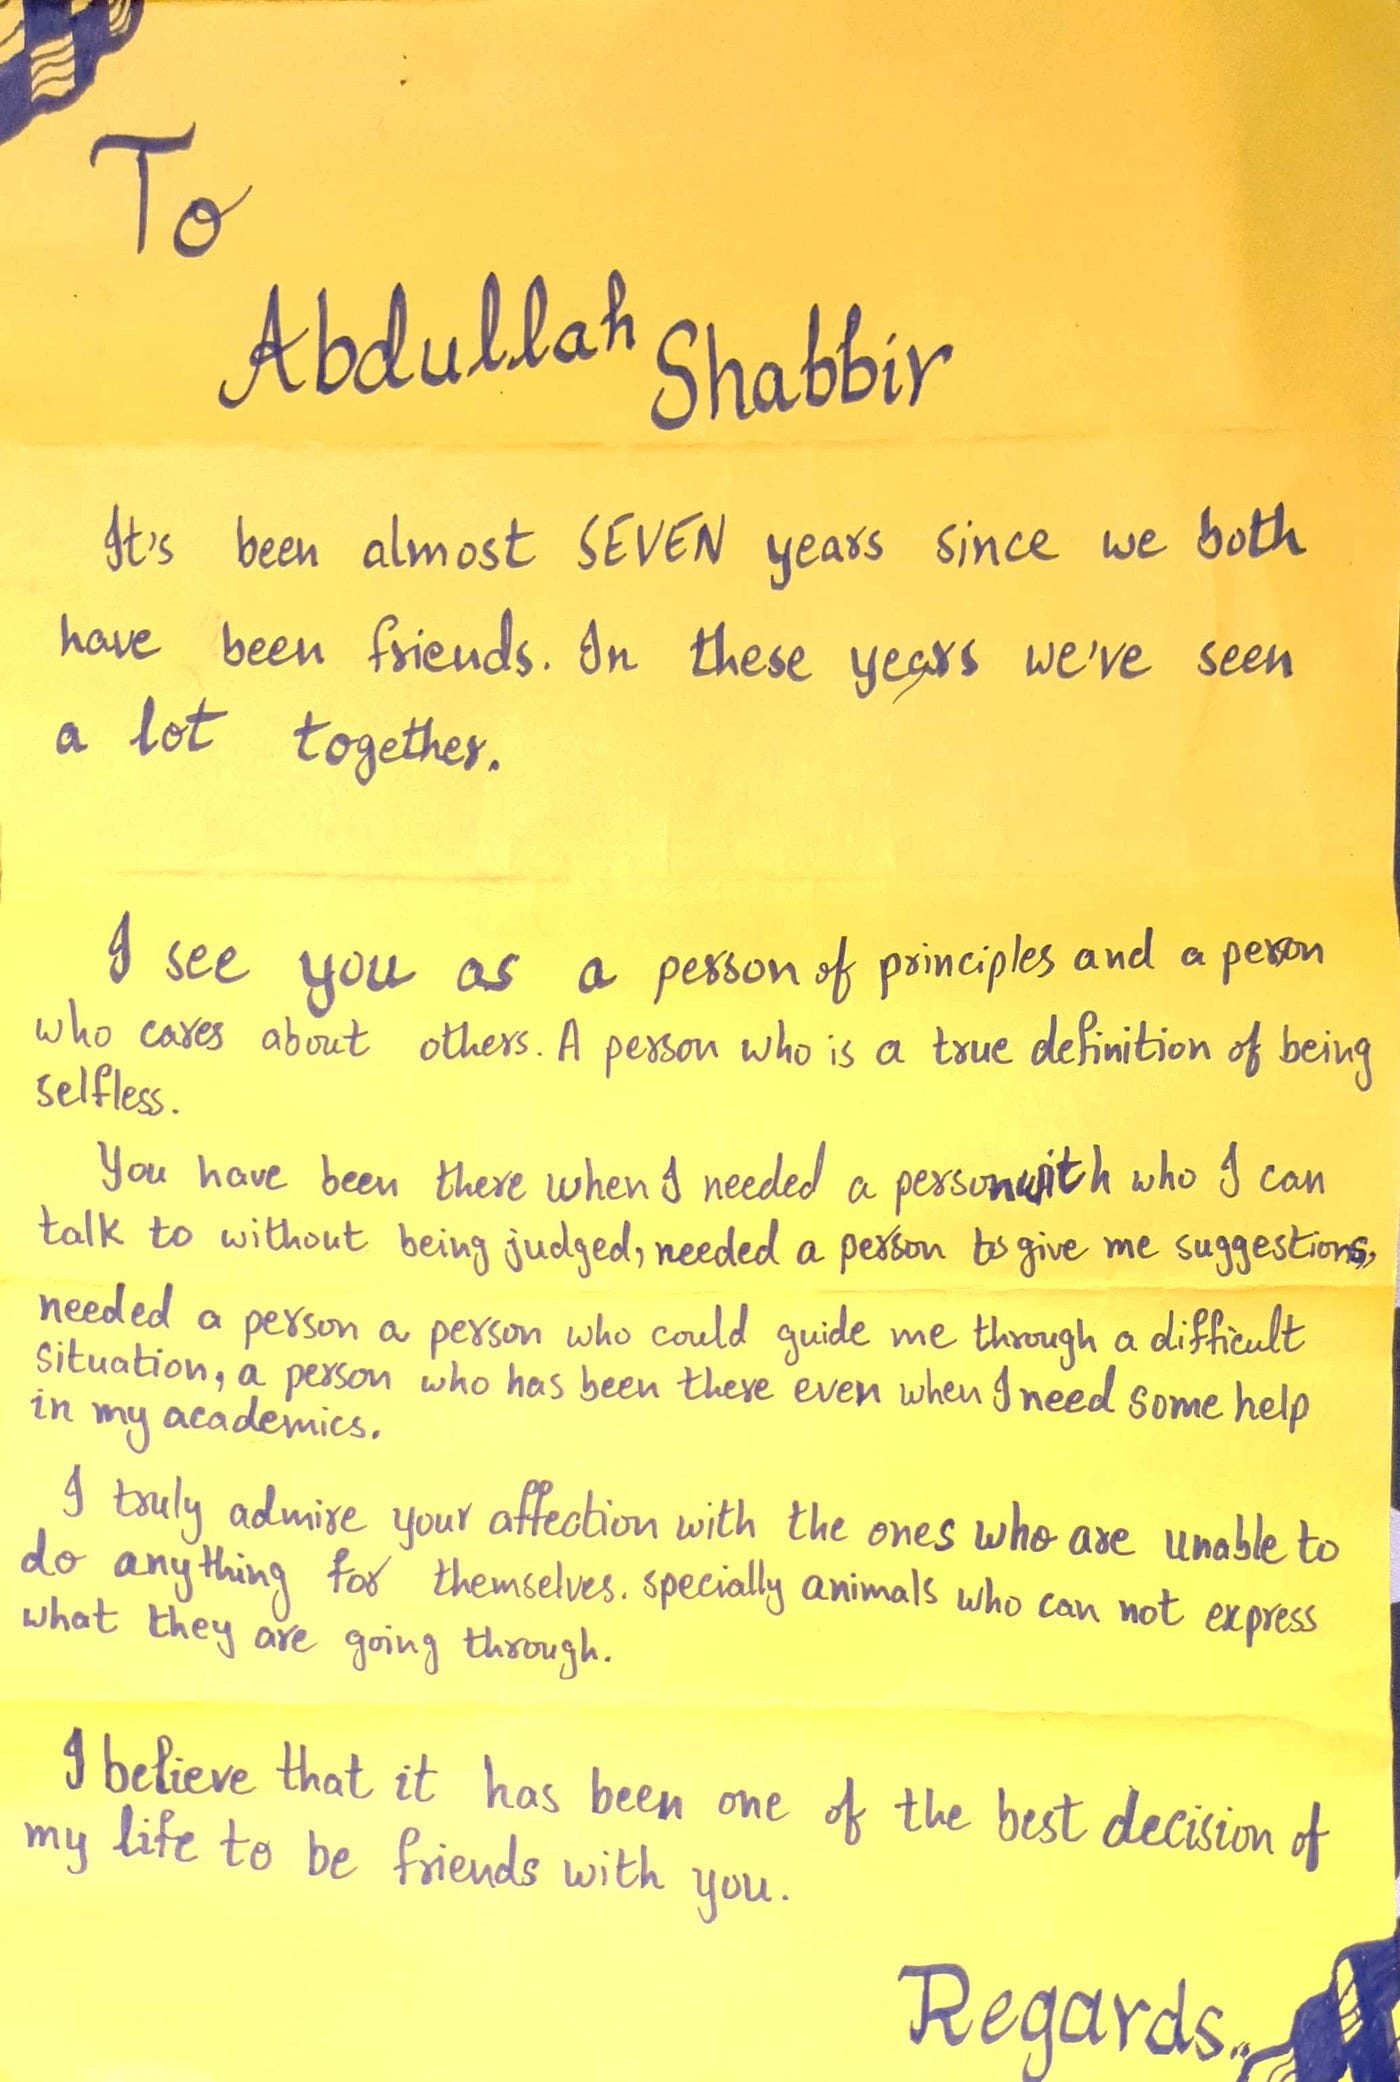 To
Abdullah Shabbir
It's been almost SEVEN years since we both
have been friends. In these years we've seen
a lot together.
I see you as a person of principles and a person
who cares about others. A person who is a true definition of being
selfless.
You have been there when I needed a person with who I can
talk to without being judged, needed a person to give me suggestions,
needed a person a person who could guide me through a difficult
situation, a person who has been there even when I need some help
in my academics.
I truly admire your affection with the ones who are unable to
do anything for themselves. specially animals who can not express
what they are going through.
I believe that it has been one of the best decision of
my life to be friends with you.
Regards..